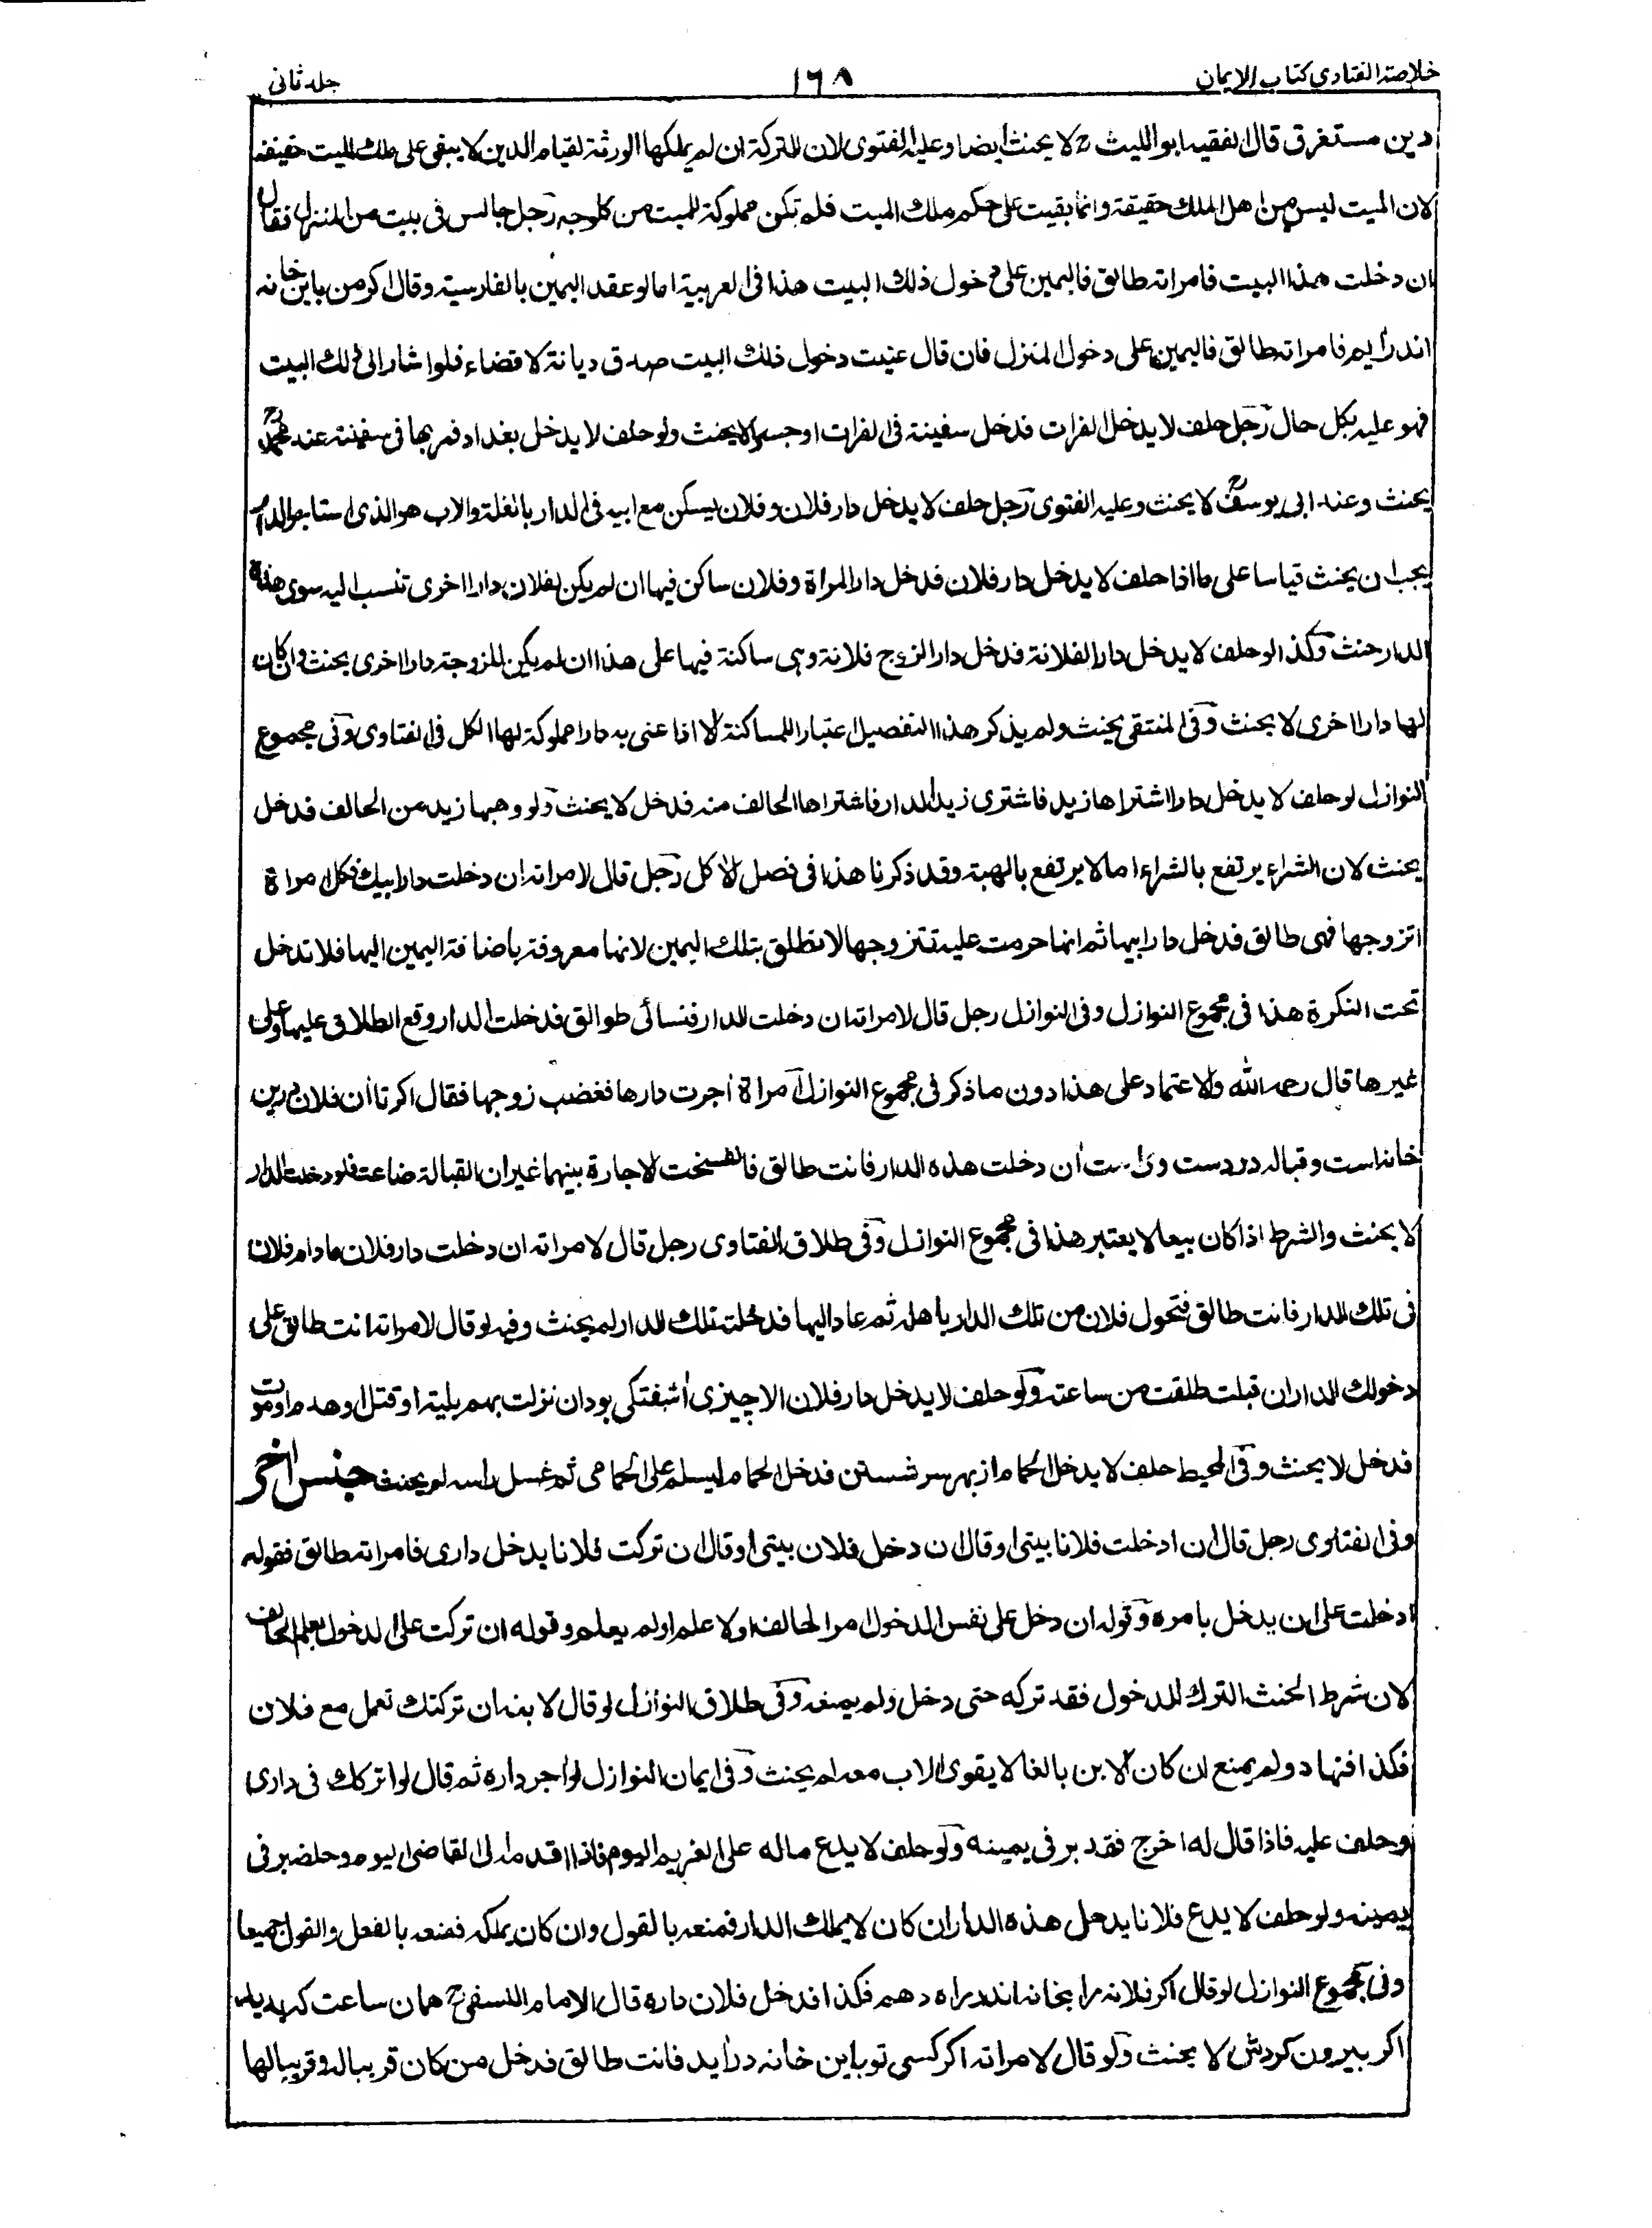 خلاصة الفتاوى كتاب الايمان ١٦٨ جلد ثانى
دين مستغرق قال الفقيه ابو الليث رح لا يحنث ايضا وعليه الفتوى لان التركة ان لم يملكها الورثة لقيام الدين لا يبقى على ملك الميت حقيقة
لان الميت ليس من اهل الملك حقيقة وانما بقيت على حكم ملك الميت فلم تكن مملوكة للميت من كل وجه رجل جالس فى بيت من المنزل فقال
ان دخلت هذا البيت فامراته طالق فاليمين على دخول ذلك البيت هذا فى العربية اما لو عقد اليمين بالفارسية وقال اكر من باين خانه
اندر ايم فامراته طالق فاليمين على دخول المنزل فان قال عنيت دخول ذلك البيت صدق ديانة لا قضاء فلو اشار الى ذلك البيت
فهو عليه بكل حال رجل حلف لا يدخل الفرات فدخل سفينة فى الفرات او جسرا لا يحنث ولو حلف لا يدخل بغداد فمر بها فى سفينة عند محمد رح
يحنث وعند ابى يوسف رح لا يحنث وعليه الفتوى رجل حلف لا يدخل دار فلان وفلان يسكن مع ابيه فى الدار بالغلة والاب هو الذى استاجر الدار
يجب ان يحنث قياسا على ما اذا حلف لا يدخل دار فلان فدخل دار المراة وفلان ساكن فيها ان لم يكن لفلان دار اخرى تنسب اليه سوى هذه
الدار حنث وكذا لو حلف لا يدخل دار الفلانة فدخل دار الزوج فلانة وهى ساكنة فيها على هذا ان لم يكن للزوجة دار اخرى يحنث وان كان
لها دار اخرى لا يحنث وفى المنتقى يحنث ولم يذكر هذا التفصيل اعتبارا للمساكنة الا اذا عنى به دارا مملوكة لها الكل فى الفتاوى وفى مجموع
النوازل لو حلف لا يدخل دارا اشتراها زيد فاشترى زيد الدار فاشتراها الحالف منه فدخل لا يحنث ولو وهبها زيد من الحالف فدخل
يحنث لان الشراء يرتفع بالشراء اما لا يرتفع بالهبة وقد ذكرنا هذا فى فصل الاكل رجل قال لامراته ان دخلت دار ابيك فكل امراة
اتزوجها فهى طالق فدخل دار ابيها ثم انها حرمت عليه تتزوجها لا تطلق بتلك اليمين لانها معروفة باضافة اليمين اليها فلا تدخل
تحت النكرة هذا فى مجموع النوازل وفى النوازل رجل قال لامراته ان دخلت الدار فنسائى طوالق فدخلت الدار وقع الطلاق عليها وعلى
غيرها قال رحمه الله والاعتماد على هذا دون ما ذكر فى مجموع النوازل امراة اجرت دارها فغضب زوجها فقال اكر تا ان فلان درين
خانه است وقباله در دست وى است ان دخلت هذه الدار فانت طالق فانفسخت الاجارة بينهما غير ان القبالة ضاعت فلو دخلت الدار
لا يحنث والشرط اذا كان بيعا لا يعتبر هذا فى مجموع النوازل وفى طلاق الفتاوى رجل قال لامراته ان دخلت دار فلان مادام فلان
فى تلك الدار فانت طالق فتحول فلان من تلك الدار باهله ثم عاد اليها فدخلت تلك الدار لم يحنث وفيه لو قال لامراته انت طالق على
دخولك الدار ان قبلت طلقت من ساعته ولو حلف لا يدخل دار فلان الا چيزى اشفتگى بود ان نزلت بهم بلية او قتل او هدم او موت
فدخل لا يحنث وفى المحيط حلف لا يدخل الحمام از بهر سر شستن فدخل الحمام ليسلم على الحمامى ثم غسل راسه لم يحنث جنس اخر
وفى الفتاوى رجل قال ان ادخلت فلانا بيتى او قال ان دخل فلان بيتى او قال ان تركت فلانا يدخل دارى فامراته طالق فقوله
ادخلت على ان يدخل بامره وقوله ان دخل على نفس الدخول امر الحالف او لا علم او لم يعلم وقوله ان تركت على الدخول بعلم الحالف
لان شرط الحنث الترك للدخول فقد تركه حتى دخل ولم يمنعه وفى طلاق النوازل لو قال لابنه ان تركتك تعمل مع فلان
فكذا فتهاد ولم يمنع ان كان الابن بالغا لا يقوى الاب معه لم يحنث وفى ايمان النوازل لو اجر داره ثم قال لو اتركك فى دارى
وحلف عليه فاذا قال له اخرج فقد بر فى يمينه ولو حلف لا يدع ماله على الغريم اليوم فاذا قدمه الى القاضى اليوم وحلفه بر فى
يمينه ولو حلف لا يدع فلانا يدخل هذه الدار ان كان لا يملك الدار فمنعه بالقول وان كان يملكه فمنعه بالفعل والقول جميعا
وفى مجموع النوازل لو قال اكر فلانه را بخانه اندر راه دهم فكذا فدخل فلان داره قال الامام النسفى رح همان ساعت كه بديد
اكر بيرون كردش لا يحنث ولو قال لامراته اكر كسى تو باين خانه درايد فانت طالق فدخل من كان قريبا له وقريبا لها